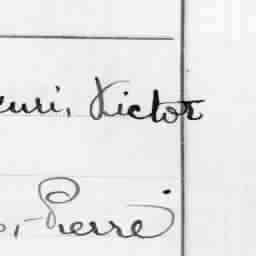 enri, Victor
s, Pierre